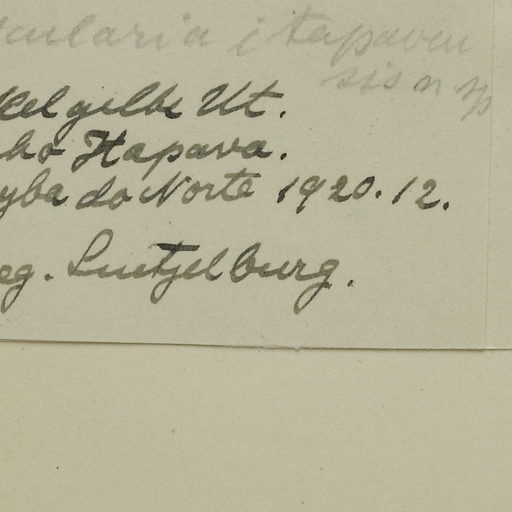 cularia itapaven
sis n sp
kelgelbe Ut.
ho Itapava.
yba do Norte 1920.12.
eg. Luetzelburg.